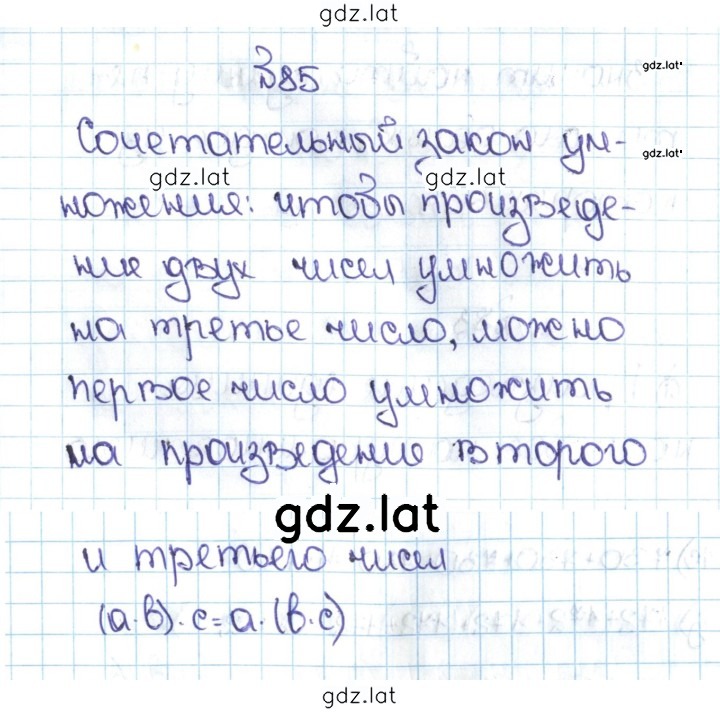 gdz.lat
385
gdz.lat
Сочетательный закон ум-
gdz.lat
gdz.lat gdz.lat
ножения: чтобы произведе-
ние двух чисел умножить
на третье число, можно
первое число умножить
на произведение второго
gdz.lat
и третьего чисел
(a·b)·c=a·(b·c)
gdz.lat